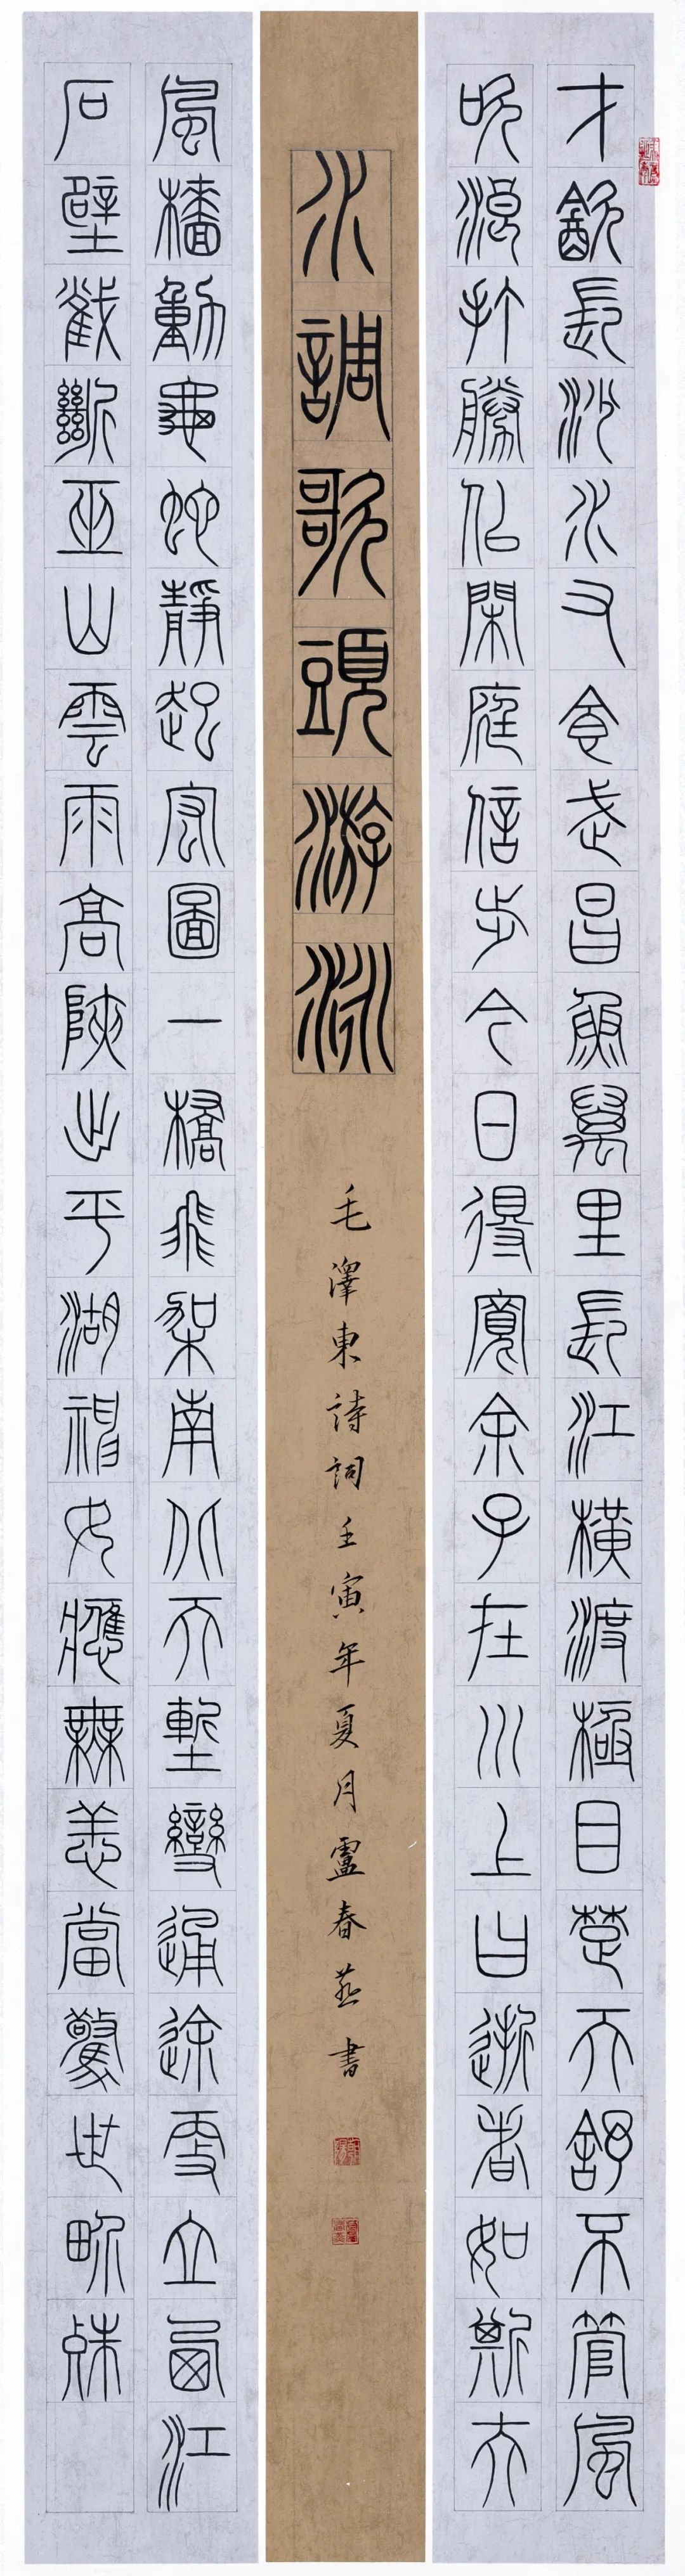 才飲長沙水又食武昌魚萬里長江橫渡極目楚天舒不管風
吹浪打勝似閑庭信步今日得寬余子在川上曰逝者如斯夫
水調歌頭游泳
毛澤東詩詞壬寅年夏月盧春燕書
風檣動龜蛇靜起宏圖一橋飛架南北天塹變通途更立西江
石壁截斷巫山雲雨高峽出平湖神女應無恙當驚世界殊